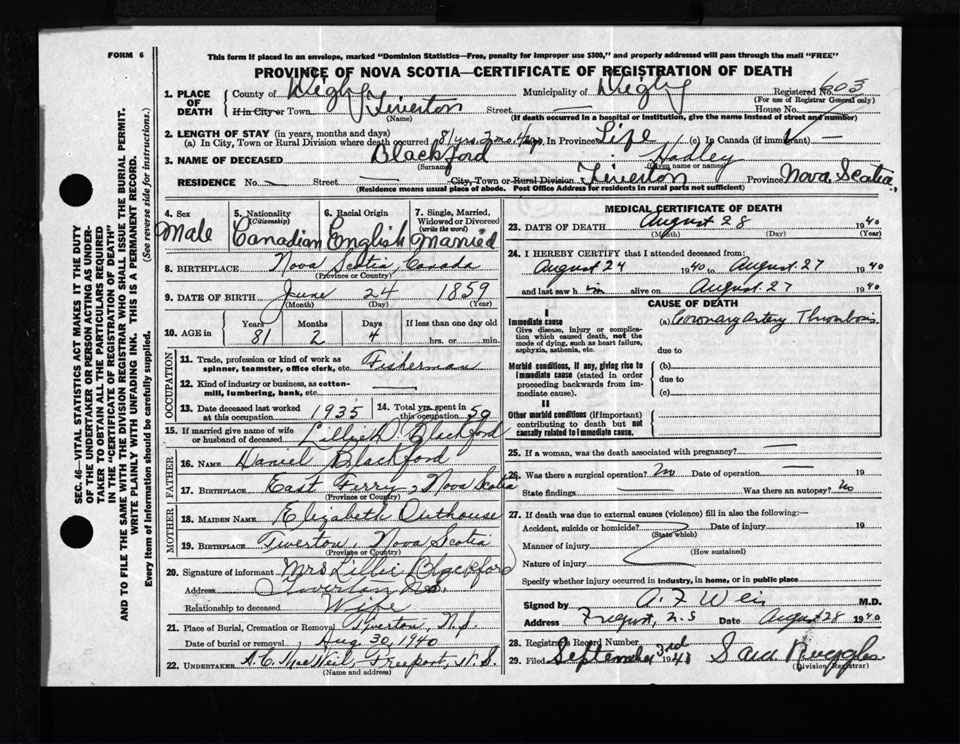 FORM 6
This form if placed in an envelope, marked "Dominion Statistics—Free, penalty for improper use $300," and properly addressed will pass through the mail "FREE"
PROVINCE OF NOVA SCOTIA—CERTIFICATE OF REGISTRATION OF DEATH
1. PLACE OF DEATH County of Digby Municipality of Digby Registered No. 603
(For use of Registrar General only)
If in City or Town Tiverton Street House No.
(Name) (If death occurred in a hospital or institution, give its name instead of street and number)
2. LENGTH OF STAY (in years, months and days)
(a) In City, Town or Rural Division where death occurred 81 yrs. 2 mo. 4 days In Province Life (c) In Canada (if immigrant)
3. NAME OF DECEASED Blackford Hadley
(Surname) (Given name or names)
RESIDENCE No. Street City, Town or Rural Division Tiverton Province Nova Scotia
(Residence means usual place of abode. Post Office Address for residents in rural parts not sufficient)
4. Sex Male
5. Nationality (Citizenship) Canadian
6. Racial Origin English
7. Single, Married, Widowed or Divorced (write the word) Married
8. BIRTHPLACE Nova Scotia, Canada
(Province or Country)
9. DATE OF BIRTH June 24 1859
(Month) (Day) (Year)
10. AGE in Years Months Days If less than one day old
81 2 4 hrs. or min.
OCCUPATION
11. Trade, profession or kind of work as spinner, teamster, office clerk, etc. Fisherman
12. Kind of industry or business, as cotton-mill, lumbering, bank, etc.
13. Date deceased last worked at this occupation 1935
14. Total yrs. spent in this occupation 59
15. If married give name of wife or husband of deceased Blackford
FATHER
16. NAME Daniel Blackford
17. BIRTHPLACE East Ferry, Nova Scotia
(Province or Country)
MOTHER
18. MAIDEN NAME Elizabeth Outhouse
19. BIRTHPLACE Tiverton, Nova Scotia
(Province or Country)
20. Signature of informant Mrs Lillie Blackford
Address Tiverton N.S.
Relationship to deceased Wife
21. Place of Burial, Cremation or Removal Tiverton, N.S.
Date of burial or removal Aug 30, 1940
22. UNDERTAKER A.C. MacNeil, Freeport, N.S.
(Name and address)
MEDICAL CERTIFICATE OF DEATH
23. DATE OF DEATH August 28 1940
(Month) (Day) (Year)
24. I HEREBY CERTIFY that I attended deceased from:
August 24 1940 to August 27 1940
and last saw h im alive on August 27 1940
CAUSE OF DEATH
I
Immediate cause (a) Coronary artery Thrombosis
Give disease, injury or complication which caused death, not the mode of dying, such as heart failure, asphyxia, asthenia, etc.
due to
Morbid conditions, if any, giving rise to immediate cause (stated in order proceeding backwards from immediate cause). (b)
due to
(c)
II
Other morbid conditions (if important) contributing to death but not causally related to immediate cause.
25. If a woman, was the death associated with pregnancy?
26. Was there a surgical operation? No Date of operation 19
State findings Was there an autopsy? No
27. If death was due to external causes (violence) fill in also the following:—
Accident, suicide or homicide? Date of injury 19
(State which)
Manner of injury
(How sustained)
Nature of injury
Specify whether injury occurred in industry, in home, or in public place
Signed by M.D.
Address Freeport, N.S Date August 28 1940
28. Registrar's Record Number
29. Filed September 3rd 1940 Sara Ruggles
(Division Registrar)
SEC. 46—VITAL STATISTICS ACT MAKES IT THE DUTY
OF THE UNDERTAKER OR PERSON ACTING AS UNDER-
TAKER TO OBTAIN ALL THE PARTICULARS REQUIRED
IN THE "CERTIFICATE OF REGISTRATION OF DEATH"
AND TO FILE THE SAME WITH THE DIVISION REGISTRAR WHO SHALL ISSUE THE BURIAL PERMIT.
WRITE PLAINLY WITH UNFADING INK. THIS IS A PERMANENT RECORD.
Every item of information should be carefully supplied. (See reverse side for instructions.)